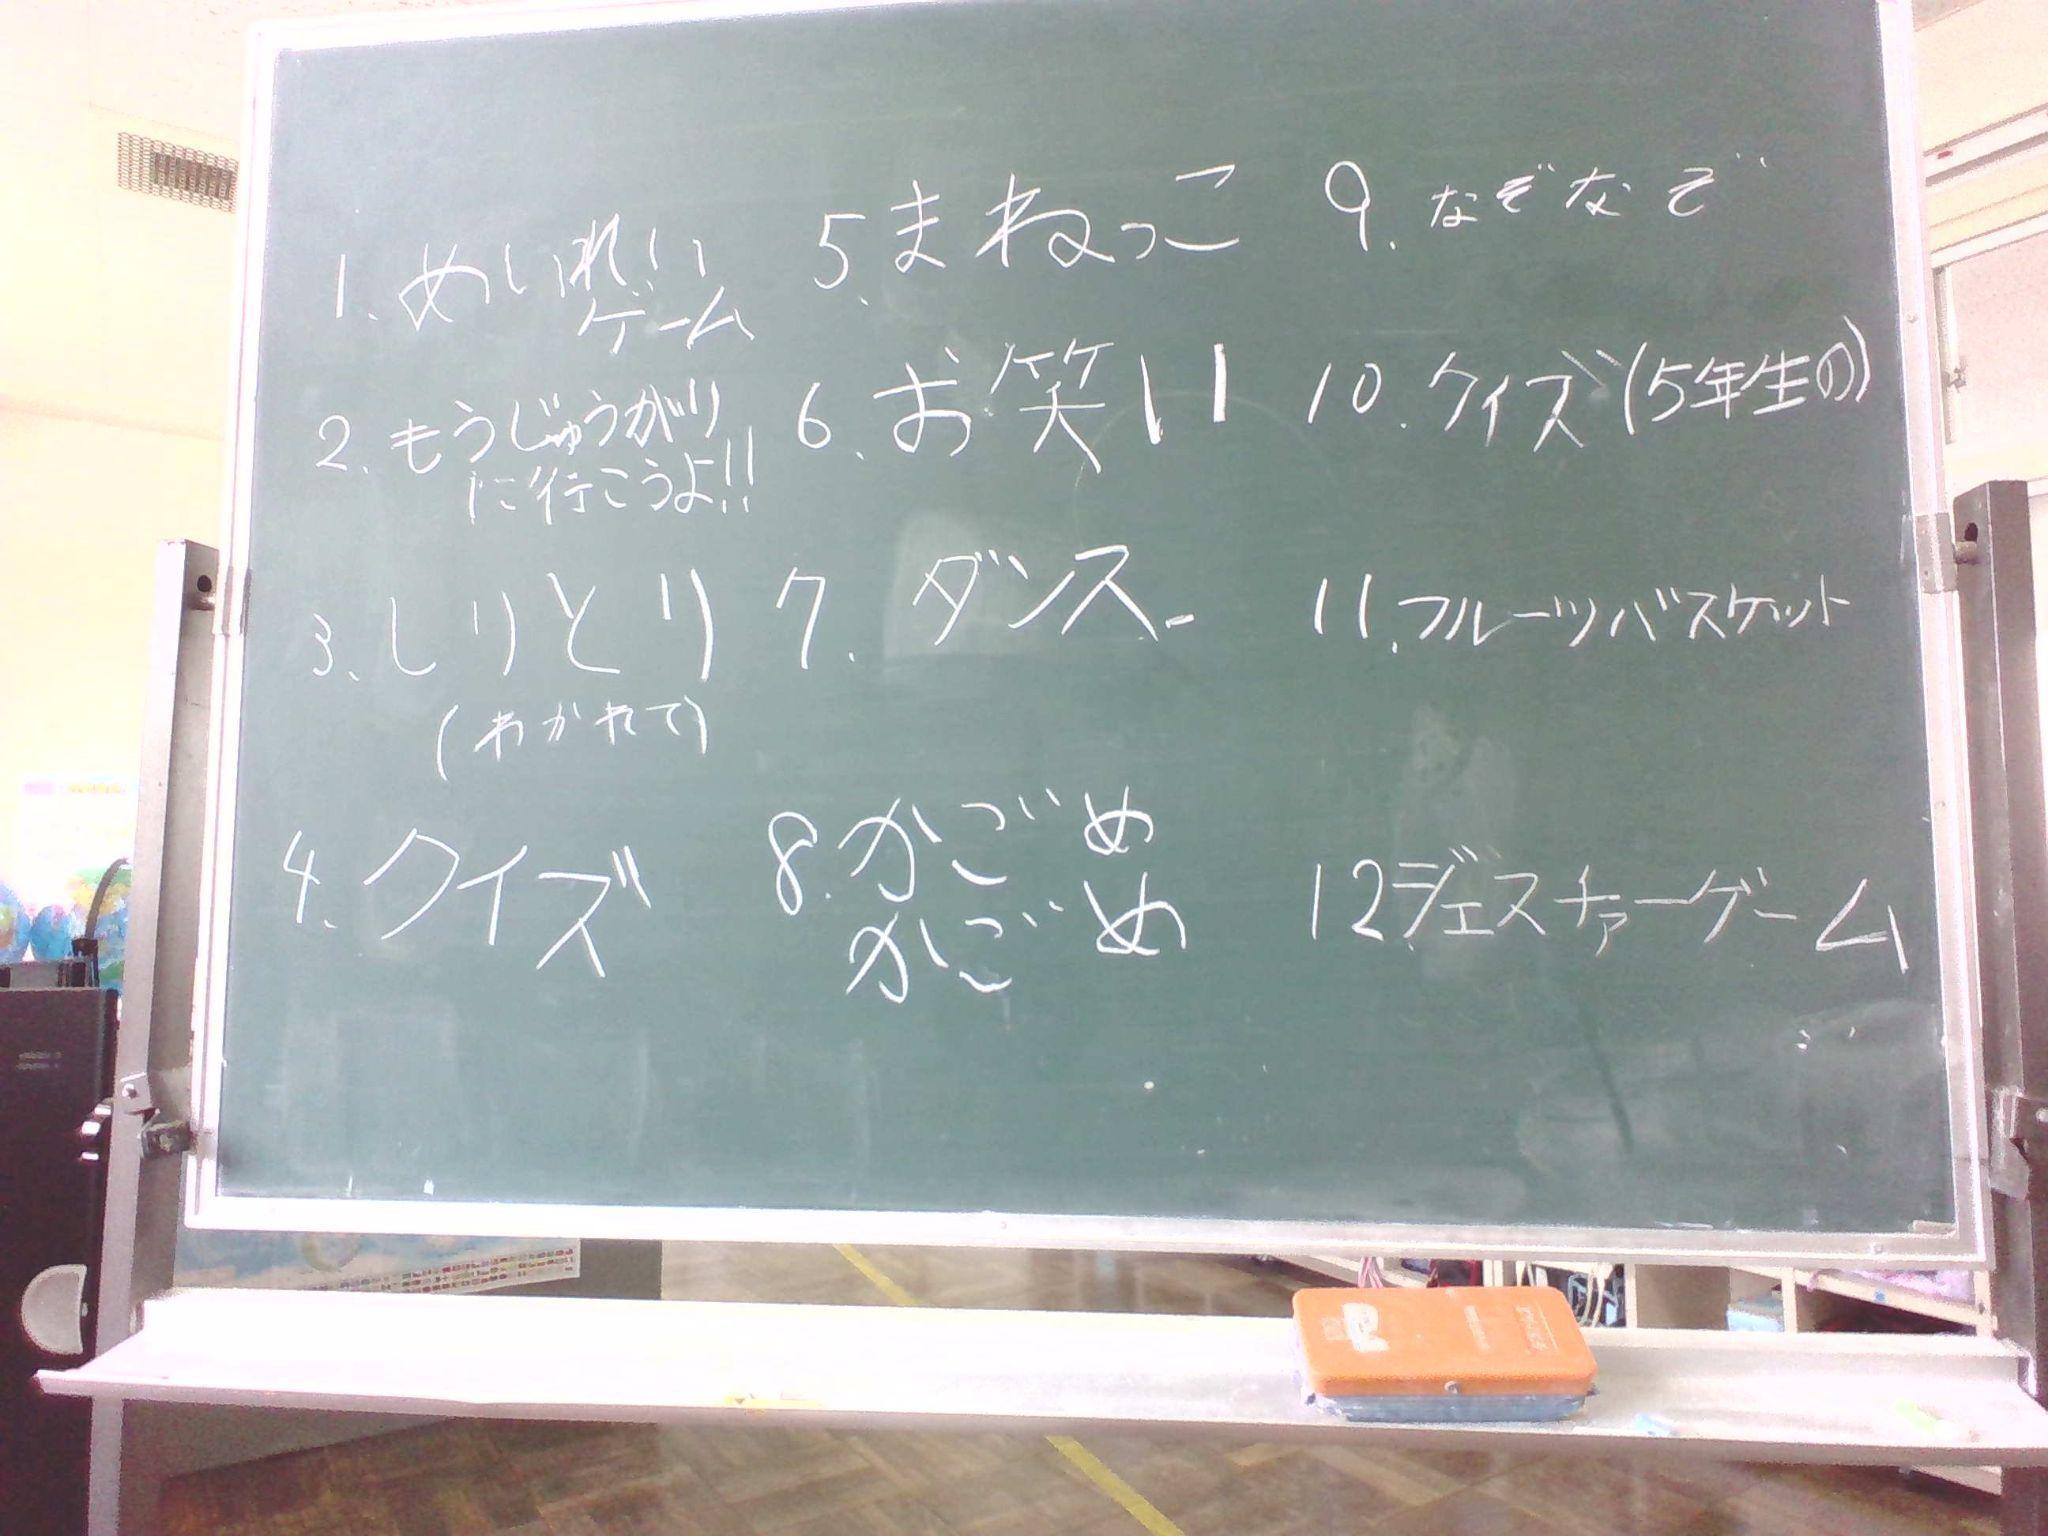 1. めいれい
ゲーム
2. もうじゅうがり
に行こうよ!!
3、しりとり
(わかれて)
4、クイズ
5、まねっこ
6、お笑い
7. ダンス
8.かごめ
かごめ
9. なぞなぞ
10. クイズ(5年生の)
11.フルーツバスケット
12.ジェスチャーゲーム